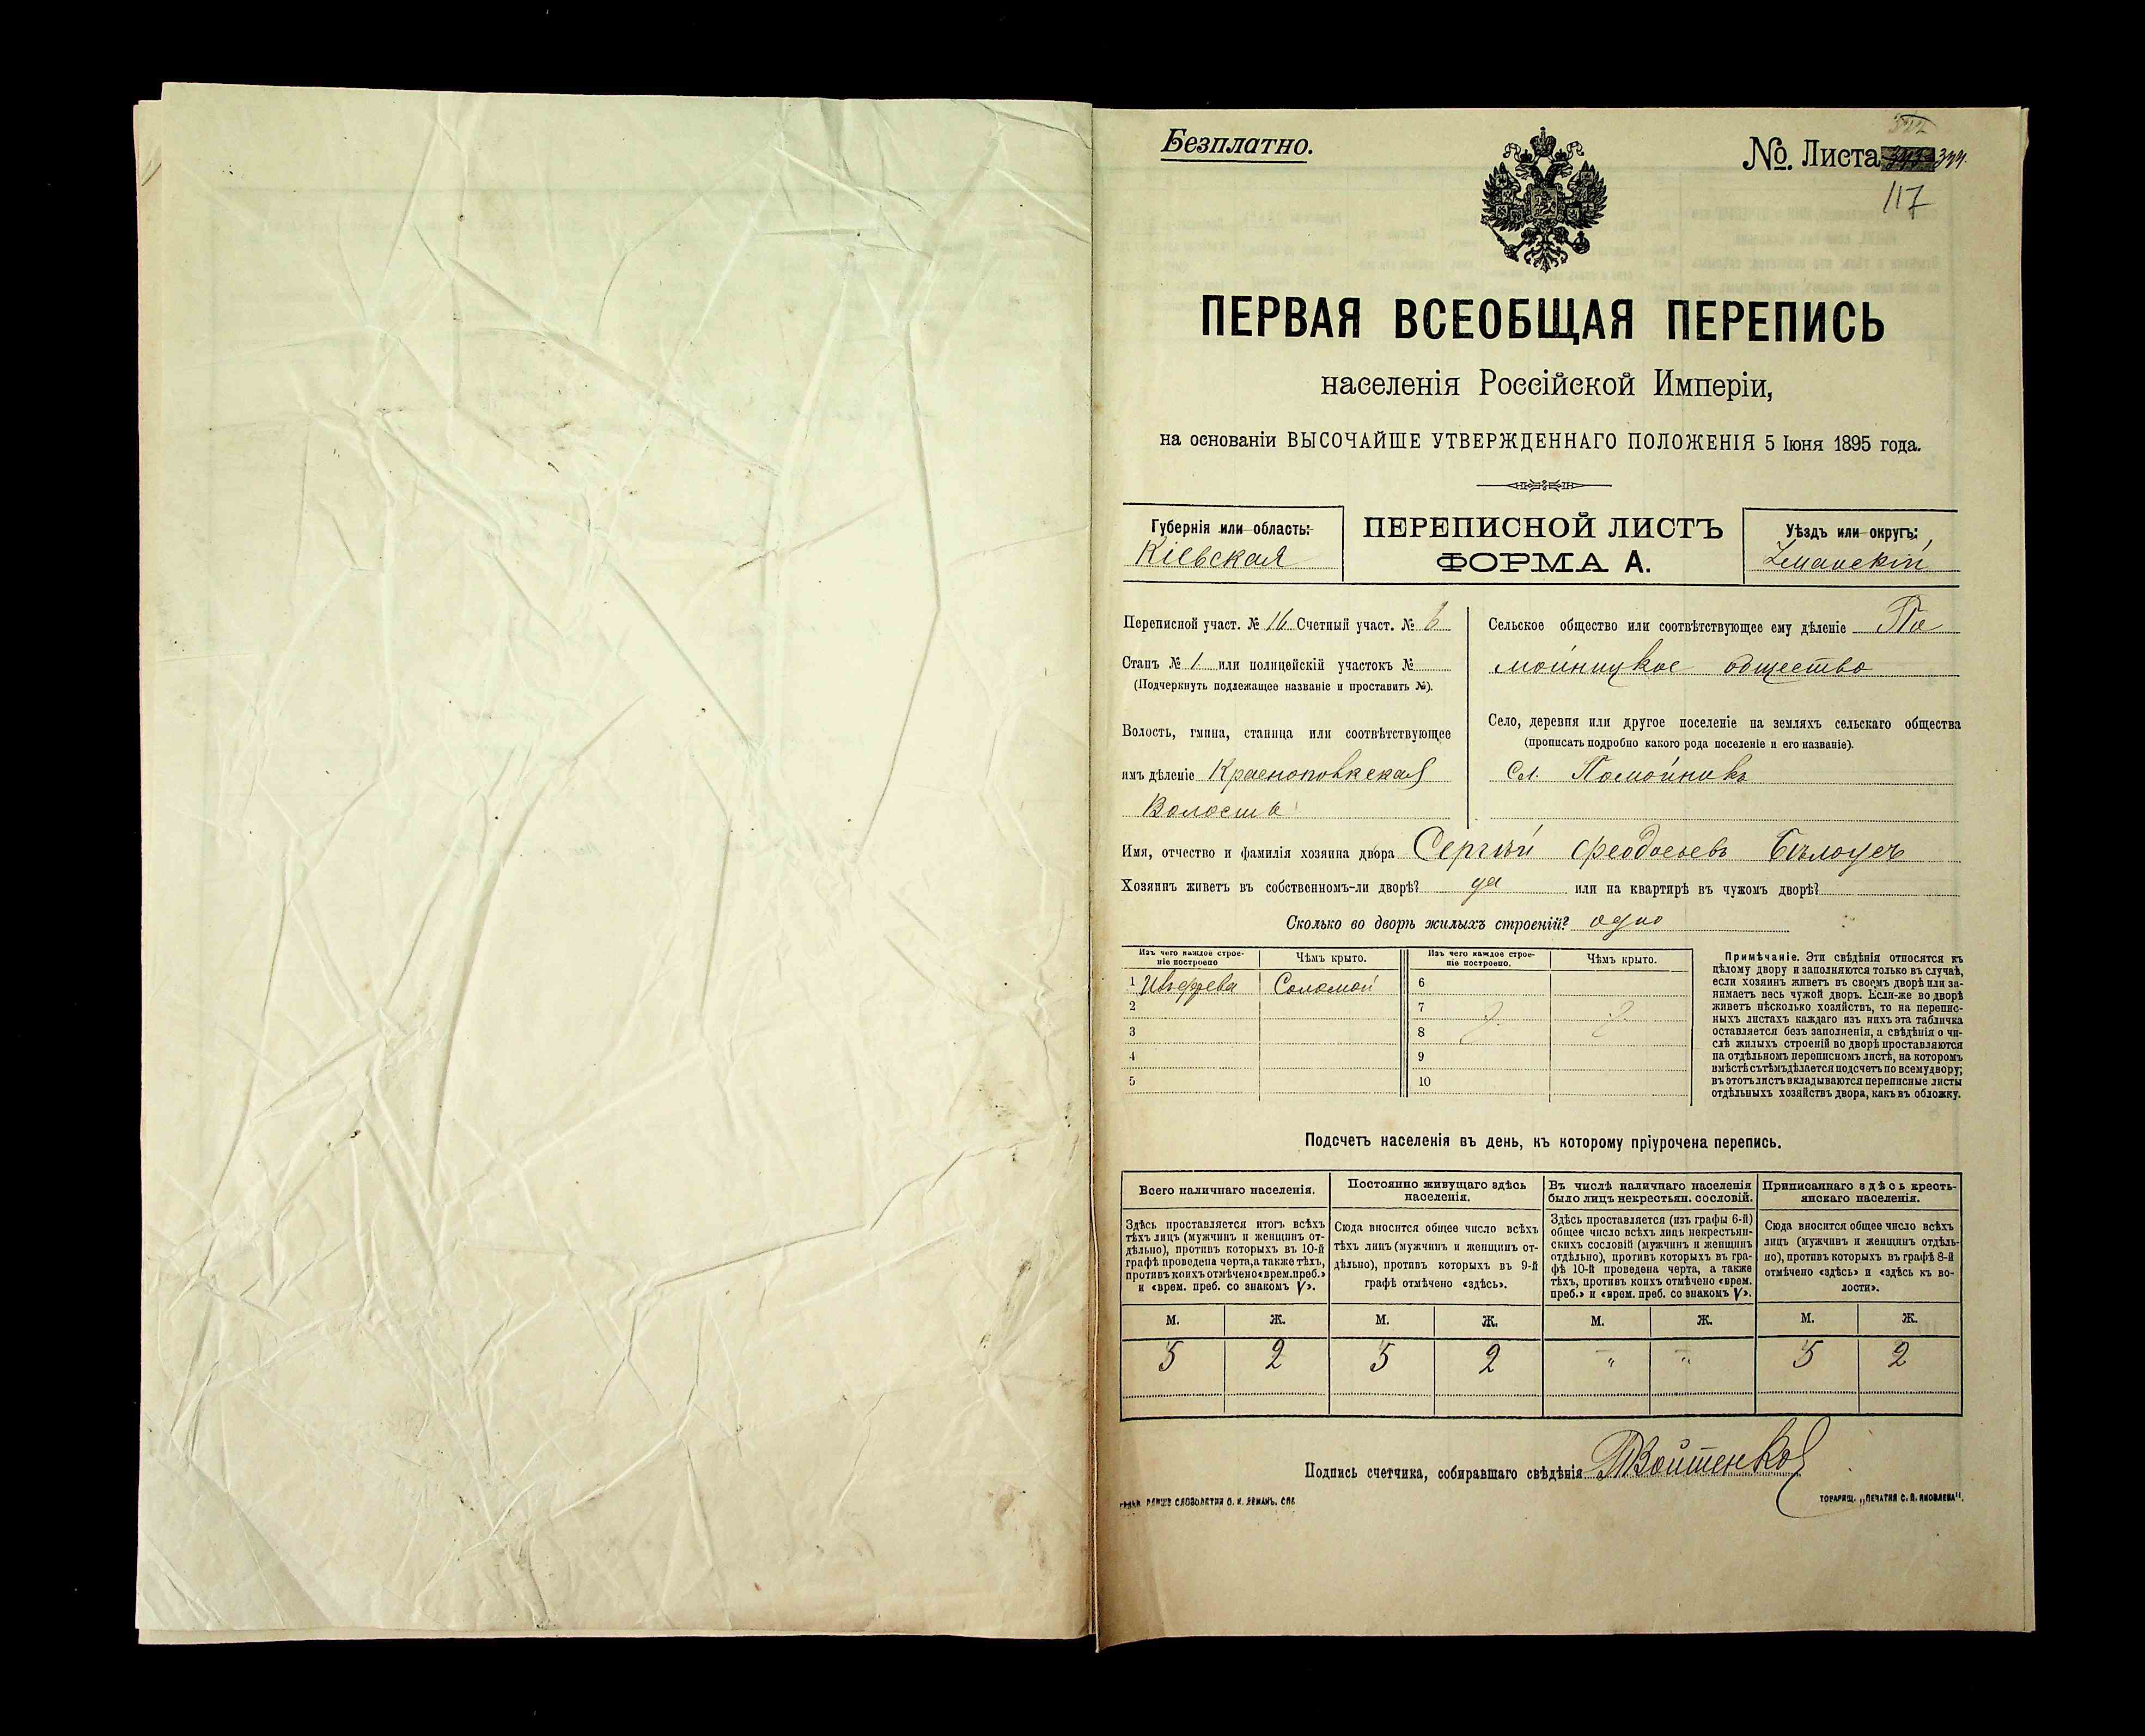 Безплатно.
№. Листа 344.
117
ПЕРВАЯ ВСЕОБЩАЯ ПЕРЕПИСЬ
населенія Россійской Имперіи,
на основаніи ВЫСОЧАЙШЕ УТВЕРЖДЕННАГО ПОЛОЖЕНІЯ 5 Іюня 1895 года.
Губернія или область:
Кіевская
ПЕРЕПИСНОЙ ЛИСТЪ
ФОРМА А.
Уѣздъ или округъ:
Уманскій
Переписной участ. № 16 Счетный участ. № 6
Станъ № 1 или полицейскій участокъ №
(Подчеркнуть подлежащее названіе и проставить №).
Волость, гмина, станица или соотвѣтствующее
имъ дѣленіе Краснополкская
Волость
Сельское общество или соотвѣтствующее ему дѣленіе По
мойницкое общество
Село, деревня или другое поселеніе на земляхъ сельскаго общества
(прописать подробно какого рода поселеніе и его названіе).
Сл. Помойникъ
Имя, отчество и фамилія хозяина двора Сергѣй Феодосьевъ Бѣлоусъ
Хозяинъ живетъ въ собственномъ-ли дворѣ? да или на квартирѣ въ чужомъ дворѣ?
Сколько во дворѣ жилыхъ строеній? одно
Изъ чего каждое строе-
ніе построено
Чѣмъ крыто.
Изъ чего каждое строе-
ніе построено.
Чѣмъ крыто.
1 Соломой 6
2 7
3 8
4 9
5 10
Примѣчаніе. Эти свѣдѣнія относятся къ
цѣлому двору и заполняются только въ случаѣ,
если хозяинъ живетъ въ своемъ дворѣ или за-
нимаетъ весь чужой дворъ. Если-же во дворѣ
живетъ нѣсколько хозяйствъ, то на перепис-
ныхъ листахъ каждаго изъ нихъ эта табличка
оставляется безъ заполненія, а свѣдѣнія о чи-
слѣ жилыхъ строеній во дворѣ проставляются
на отдѣльномъ переписномъ листѣ, на которомъ
вмѣстѣ съ тѣмъ дѣлается подсчетъ по всему двору;
въ этотъ листъ вкладываются переписные листы
отдѣльныхъ хозяйствъ двора, какъ въ обложку.
Подсчетъ населенія въ день, къ которому пріурочена перепись.
Всего наличнаго населенія.
Здѣсь проставляется итогъ всѣхъ
тѣхъ лицъ (мужчинъ и женщинъ от-
дѣльно), противъ которыхъ въ 10-й
графѣ проведена черта, а также тѣхъ,
противъ коихъ отмѣчено «врем. преб.»
и «врем. преб. со знакомъ V».
Постоянно живущаго здѣсь
населенія.
Сюда вносится общее число всѣхъ
тѣхъ лицъ (мужчинъ и женщинъ от-
дѣльно), противъ которыхъ въ 9-й
графѣ отмѣчено «здѣсь».
Въ числѣ наличнаго населенія
было лицъ некрестьян. сословій.
Здѣсь проставляется (изъ графы 6-й)
общее число всѣхъ лицъ некрестьян-
скихъ сословій (мужчинъ и женщинъ
отдѣльно), противъ которыхъ въ гра-
фѣ 10-й проведена черта, а также
тѣхъ, противъ коихъ отмѣчено «врем.
преб.» и «врем. преб. со знакомъ V».
Приписаннаго здѣсь кресть-
янскаго населенія.
Сюда вносится общее число всѣхъ
лицъ (мужчинъ и женщинъ отдѣль-
но), противъ которыхъ въ графѣ 8-й
отмѣчено «здѣсь» и «здѣсь къ во-
лости».
М. Ж. М. Ж. М. Ж. М. Ж.
5 2 5 2 " " 5 2
Подпись счетчика, собиравшаго свѣдѣнія Войтенко
ТОВАРИЩ. „ПЕЧАТНЯ С. П. ЯКОВЛЕВА".